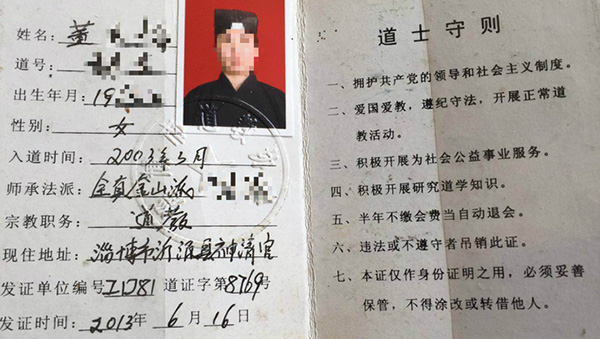 姓名: 董
道号:
出生年月: 19
性别: 女
入道时间: 2003年5月
师承法派: 全真金山派
宗教职务: 道教
现住地址: 淄博市沂源县神清宫
发证单位编号 道证字第8769号
发证时间: 2013年6月16日
道士守则
一、拥护共产党的领导和社会主义制度。
二、爱国爱教，遵纪守法，开展正常道
教活动。
三、积极开展为社会公益事业服务。
四、积极开展研究道学知识。
五、半年不缴会费当自动退会。
六、违法或不遵守者吊销此证。
七、本证仅作身份证明之用，必须妥善
保管，不得涂改或转借他人。